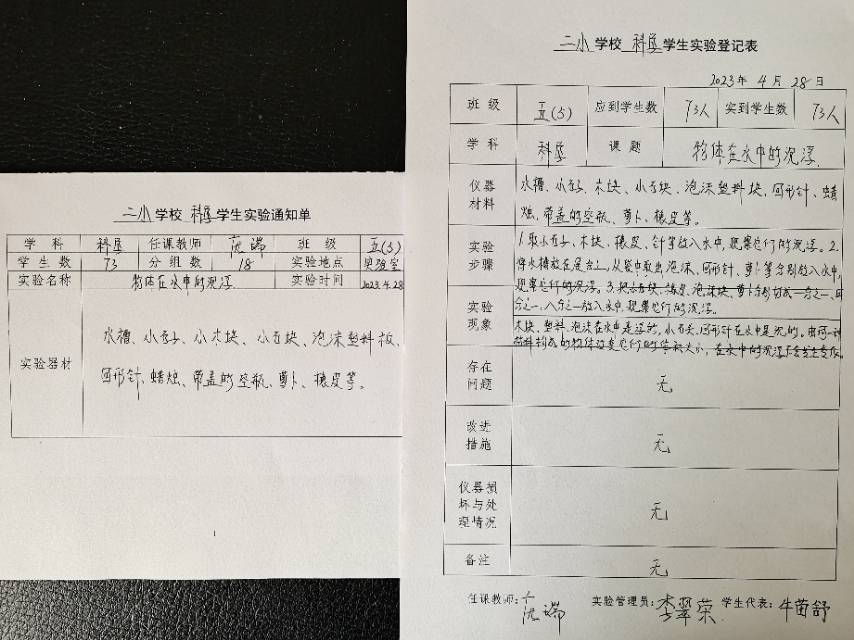 二小学校 科学学生实验通知单
学 科 科学 任课教师 沈端 班 级 五(5)
学 生 数 73 分 组 数 18 实验地点 实验室
实验名称 物体在水中的沉浮 实验时间 2023.4.28
实验器材
水槽、小石子、小木块、小石块、泡沫塑料板、
回形针、蜡烛、带盖的空瓶、萝卜、橡皮等。
二小学校 科学学生实验登记表
2023年 4月 28日
班 级 五(5) 应到学生数 73人 实到学生数 73人
学 科 科学 课 题 物体在水中的沉浮.
仪器材料
水槽、小石子、木块、小石块、泡沫塑料块、回形针、蜡
烛、带盖的空瓶、萝卜、橡皮等。
实验步骤
1.取小石子、木块、橡皮、针等放入水中,观察它们的沉浮。2.
将水槽放在展台上,从袋中取出泡沫、回形针、萝卜等分别放入水中,
观察它们的沉浮。3.把橡皮泡沫块、萝卜分别切成二分之一、四
分之一、八分之一放入水中,观察它们的沉浮。
实验现象
木块、塑料、泡沫在水中是浮的,小石头、回形针在水中是沉的。由同一种
材料构成的物体改变它们的体积大小,在水中的沉浮不会发生变化。
存在问题 无
改进措施 无
仪器损坏与处理情况 无
备注 无
任课教师: 沈端 实验管理员: 李翠荣 学生代表: 牛茵舒